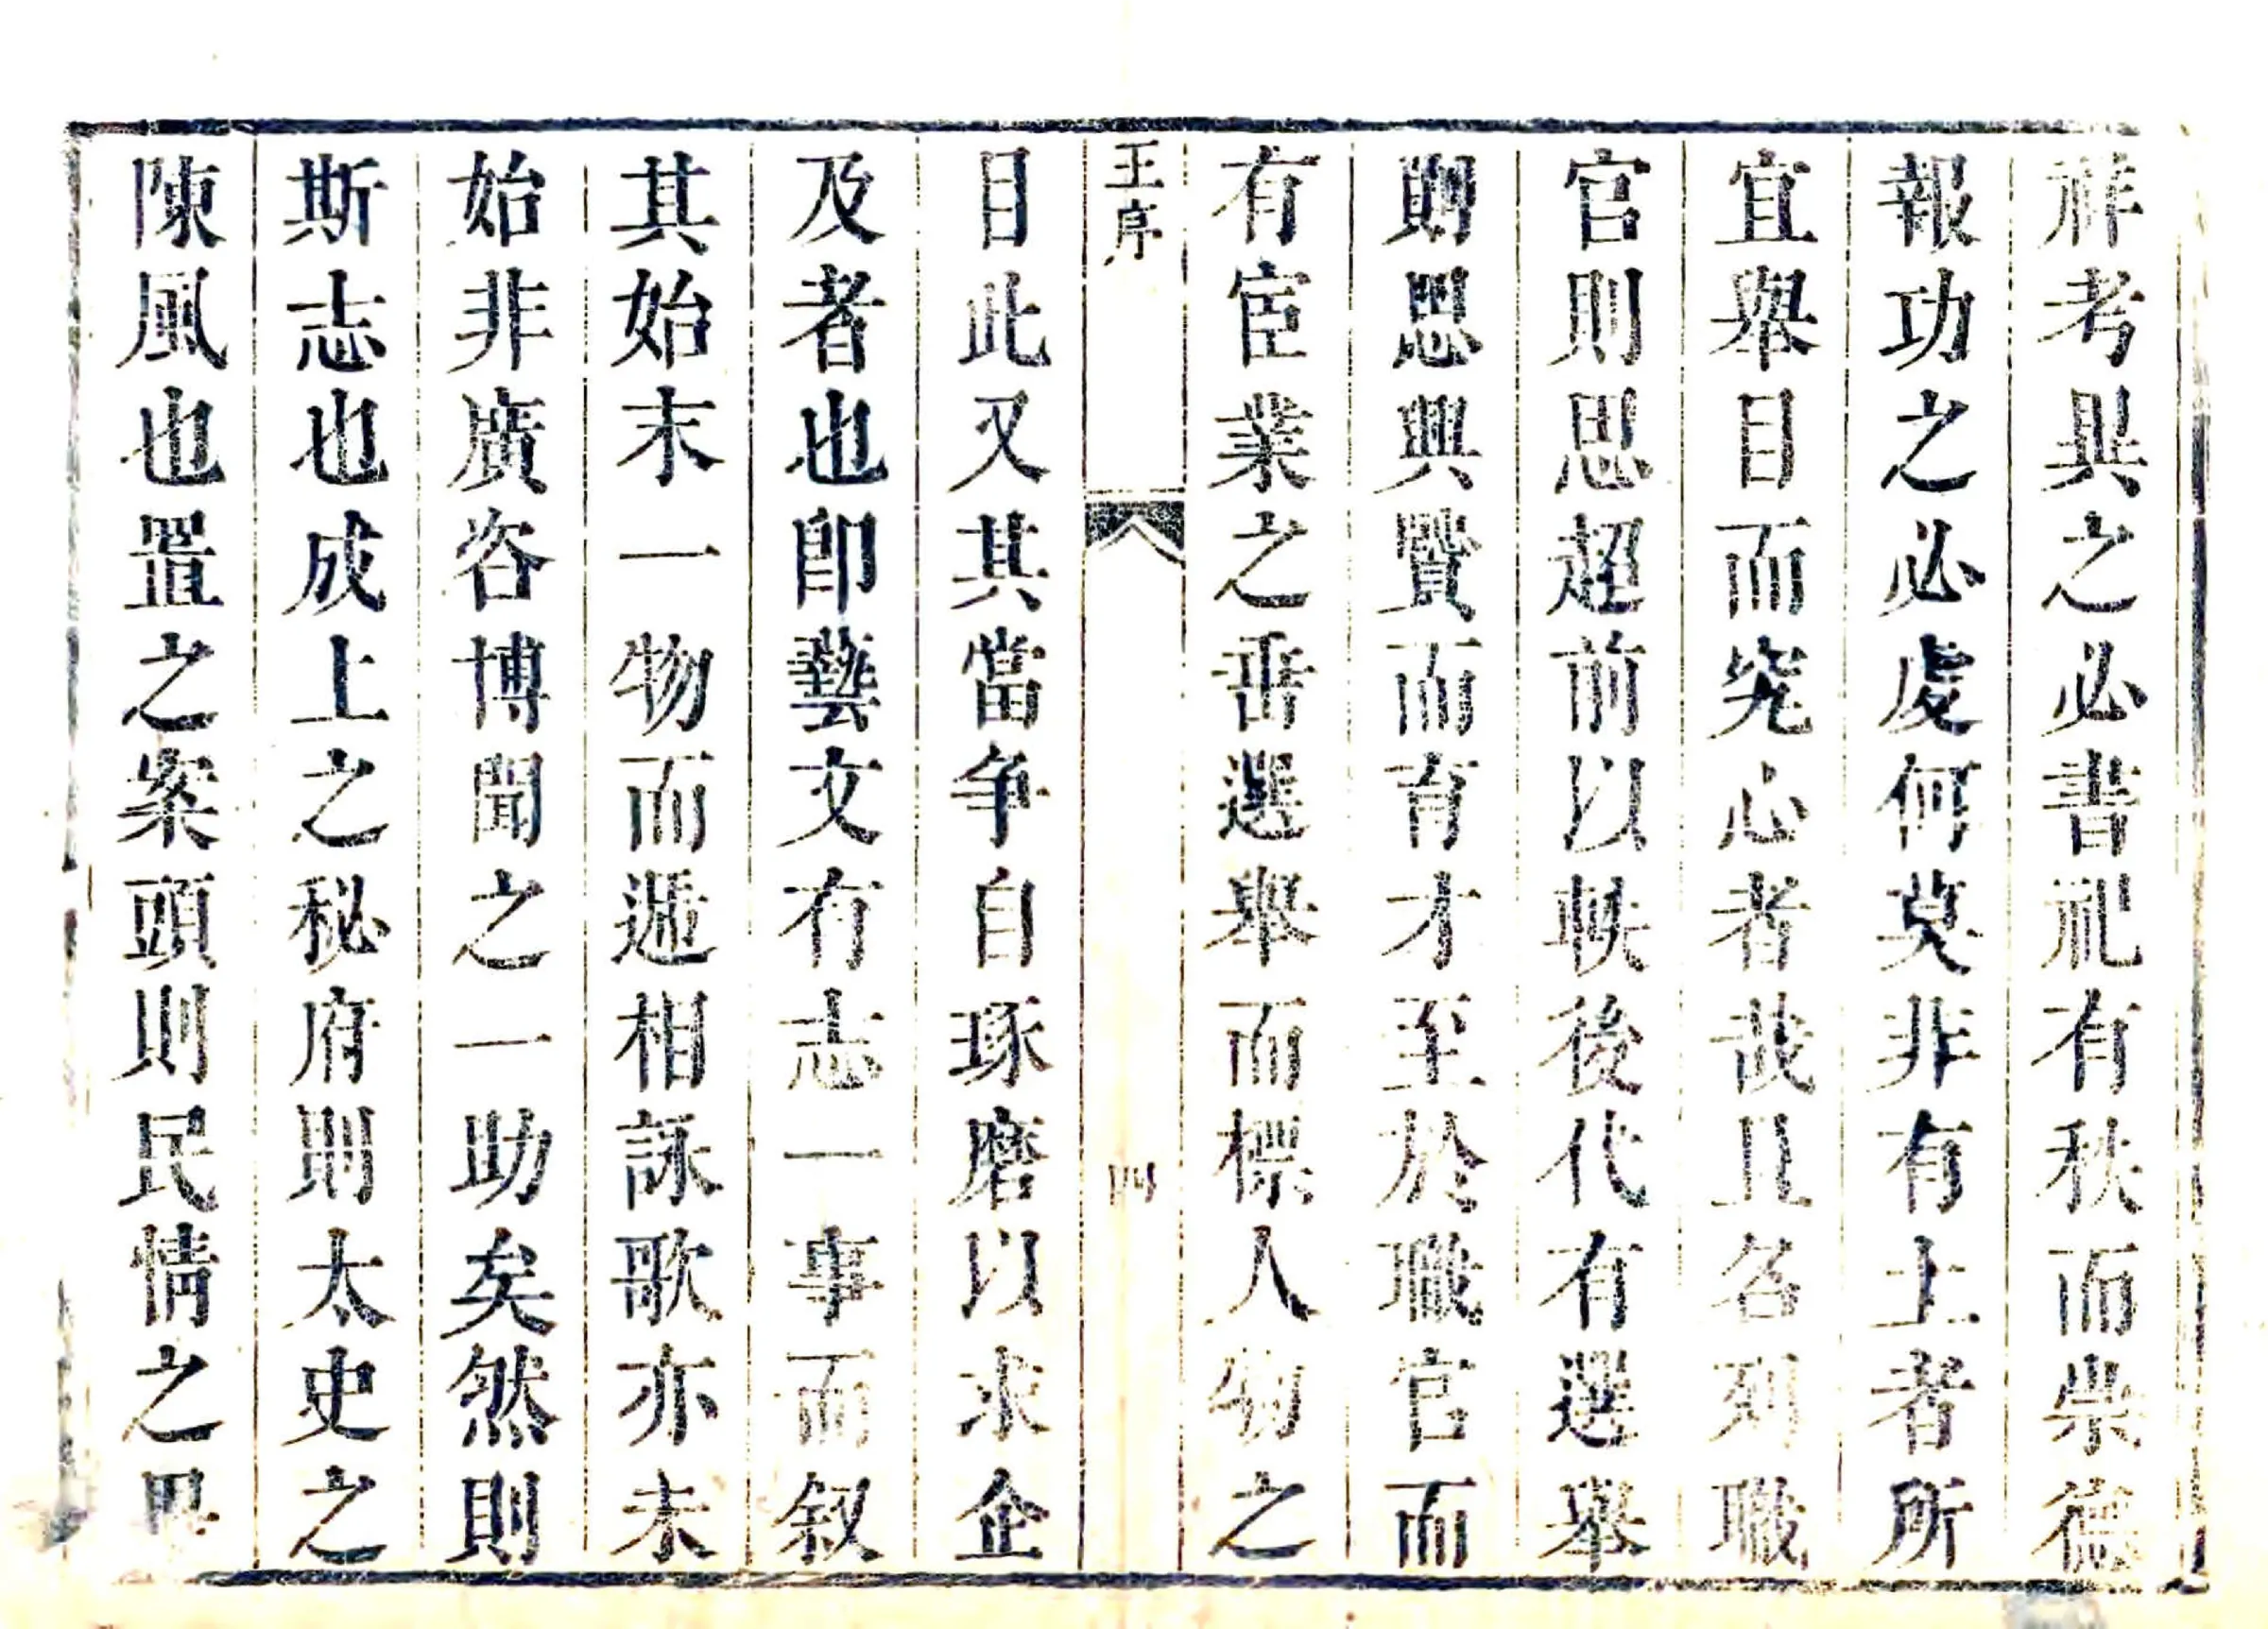 祥考異之必書祀有秩而崇德
報功之必虔何莫非有土者所
宜舉目而究心者哉且各列職
官則思超前以軼後代有選舉
則思興賢而育才至於職官而
有宦業之畨選舉而標人物之
王序
四
目此又其當争自琢磨以求企
及者也卽藝文有志一事而叙
其始末一物而遞相詠歌亦未
始非廣咨博聞之一助矣然則
斯志也成上之秘府則太史之
陳風也置之案頭則民情之